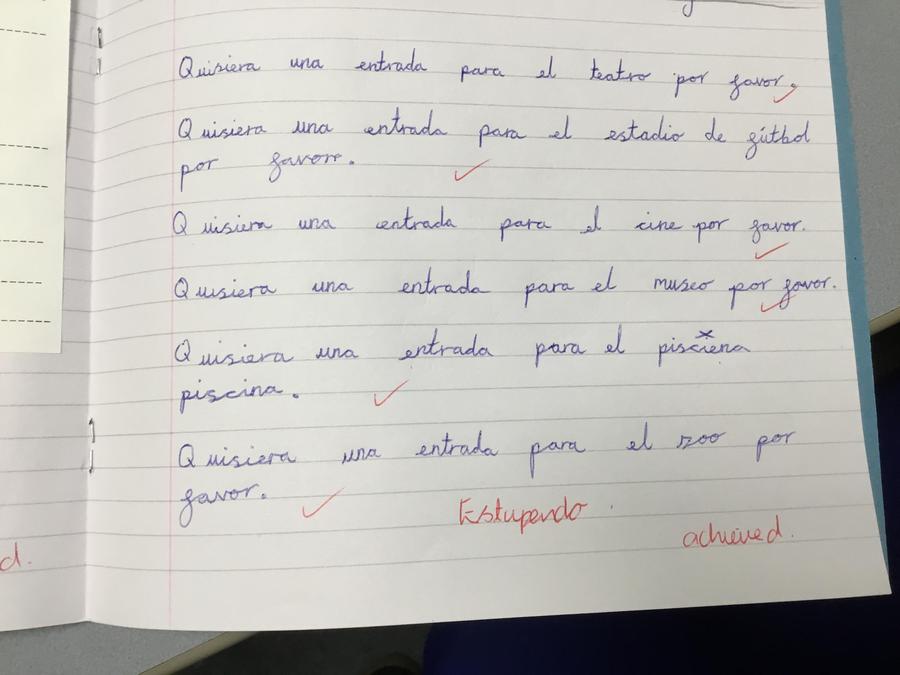 Quisiera una entrada para el teatro por favor.
Quisiera una entrada para el estadio de fútbol
por favor.
Quisiera una entrada para el cine por favor.
Quisiera una entrada para el museo por favor.
Quisiera una entrada para el pisciena
piscina.
Quisiera una entrada para el zoo por
favor.
Estupendo
achieved.
d.